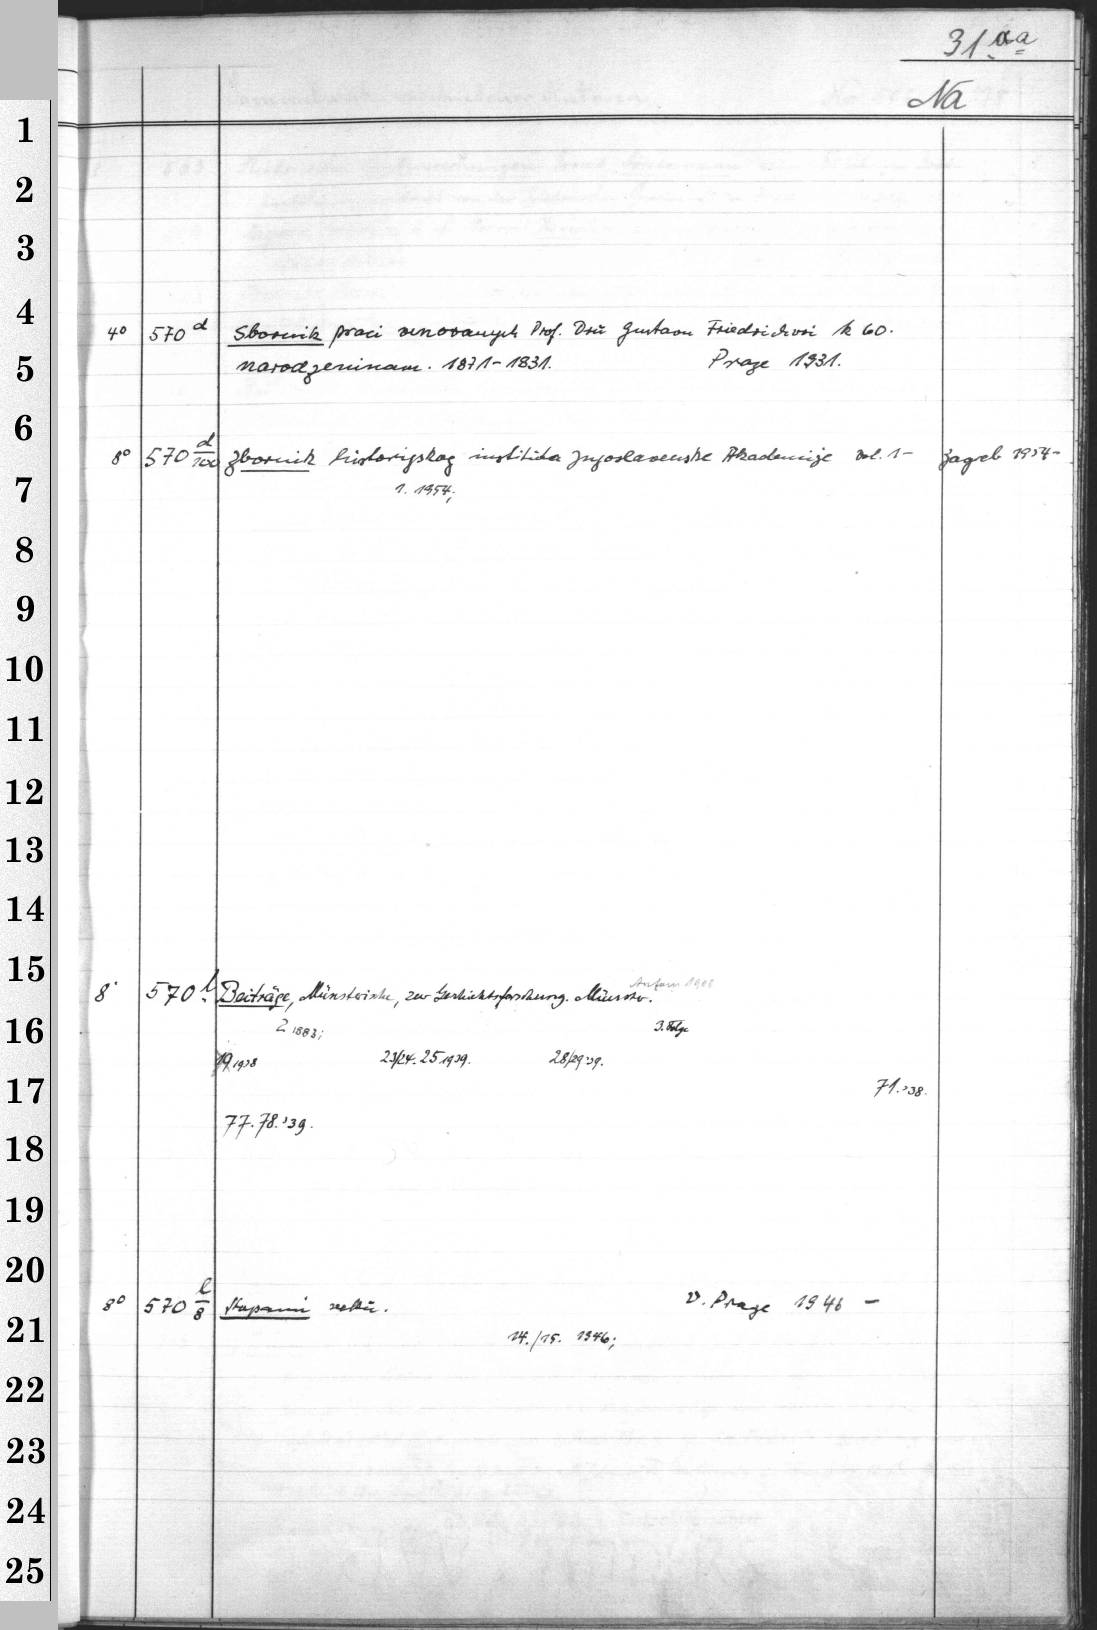 31 aa
Na
1
2
3
4
4° 570 d Sbornik praci venovanych Prof. Drů Gustavu Friedrichovi k 60.
5
narodzeninam. 1871-1831. Prage 1931.
6
8° 570 d/100 Zbornik historijskog instituta Jugoslavenske Akademije vol. 1- Zagreb 1954-
7
1. 1954;
8
9
10
11
12
13
14
15
Anfam 1908
8° 570 l Beiträge, Münsterische, zur Geschichtsforschung. Münster.
16
2 1883; 3. Folge
19. 1938 23/24. 25 1939. 28/29 '39.
17
71. '38.
77. 78. '39.
18
19
20
8° 570 l/8 v. Prage 1946 -
21
14./15. 1946;
22
23
24
25